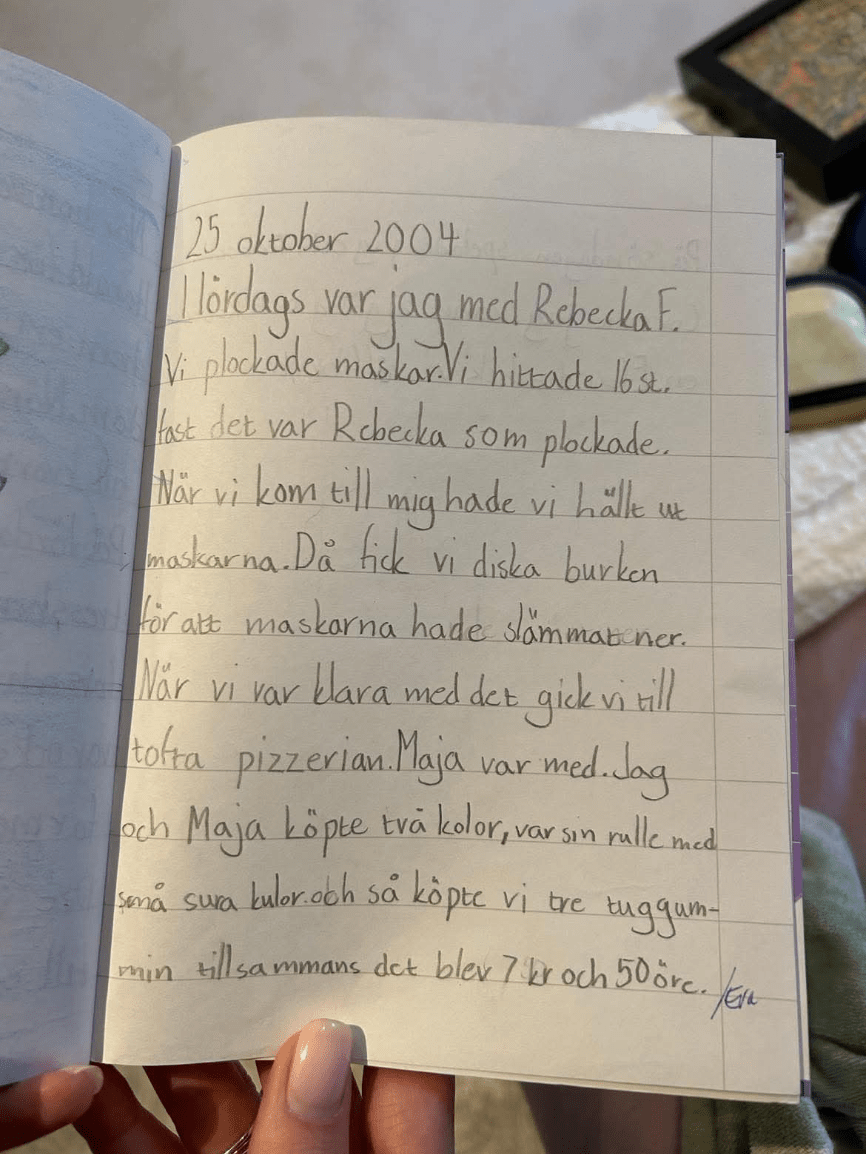 25 oktober 2004
I lördags var jag med Rebecka F.
Vi plockade maskar. Vi hittade 16 st.
fast det var Rebecka som plockade.
När vi kom till mig hade vi hällt ut
maskarna. Då fick vi diska burken
för att maskarna hade slämmat ner.
När vi var klara med det gick vi till
tofta pizzerian. Maja var med. Jag
och Maja köpte två kolor, var sin rulle med
små sura kulor. och så köpte vi tre tuggum-
min tillsammans det blev 7 kr och 50 öre.